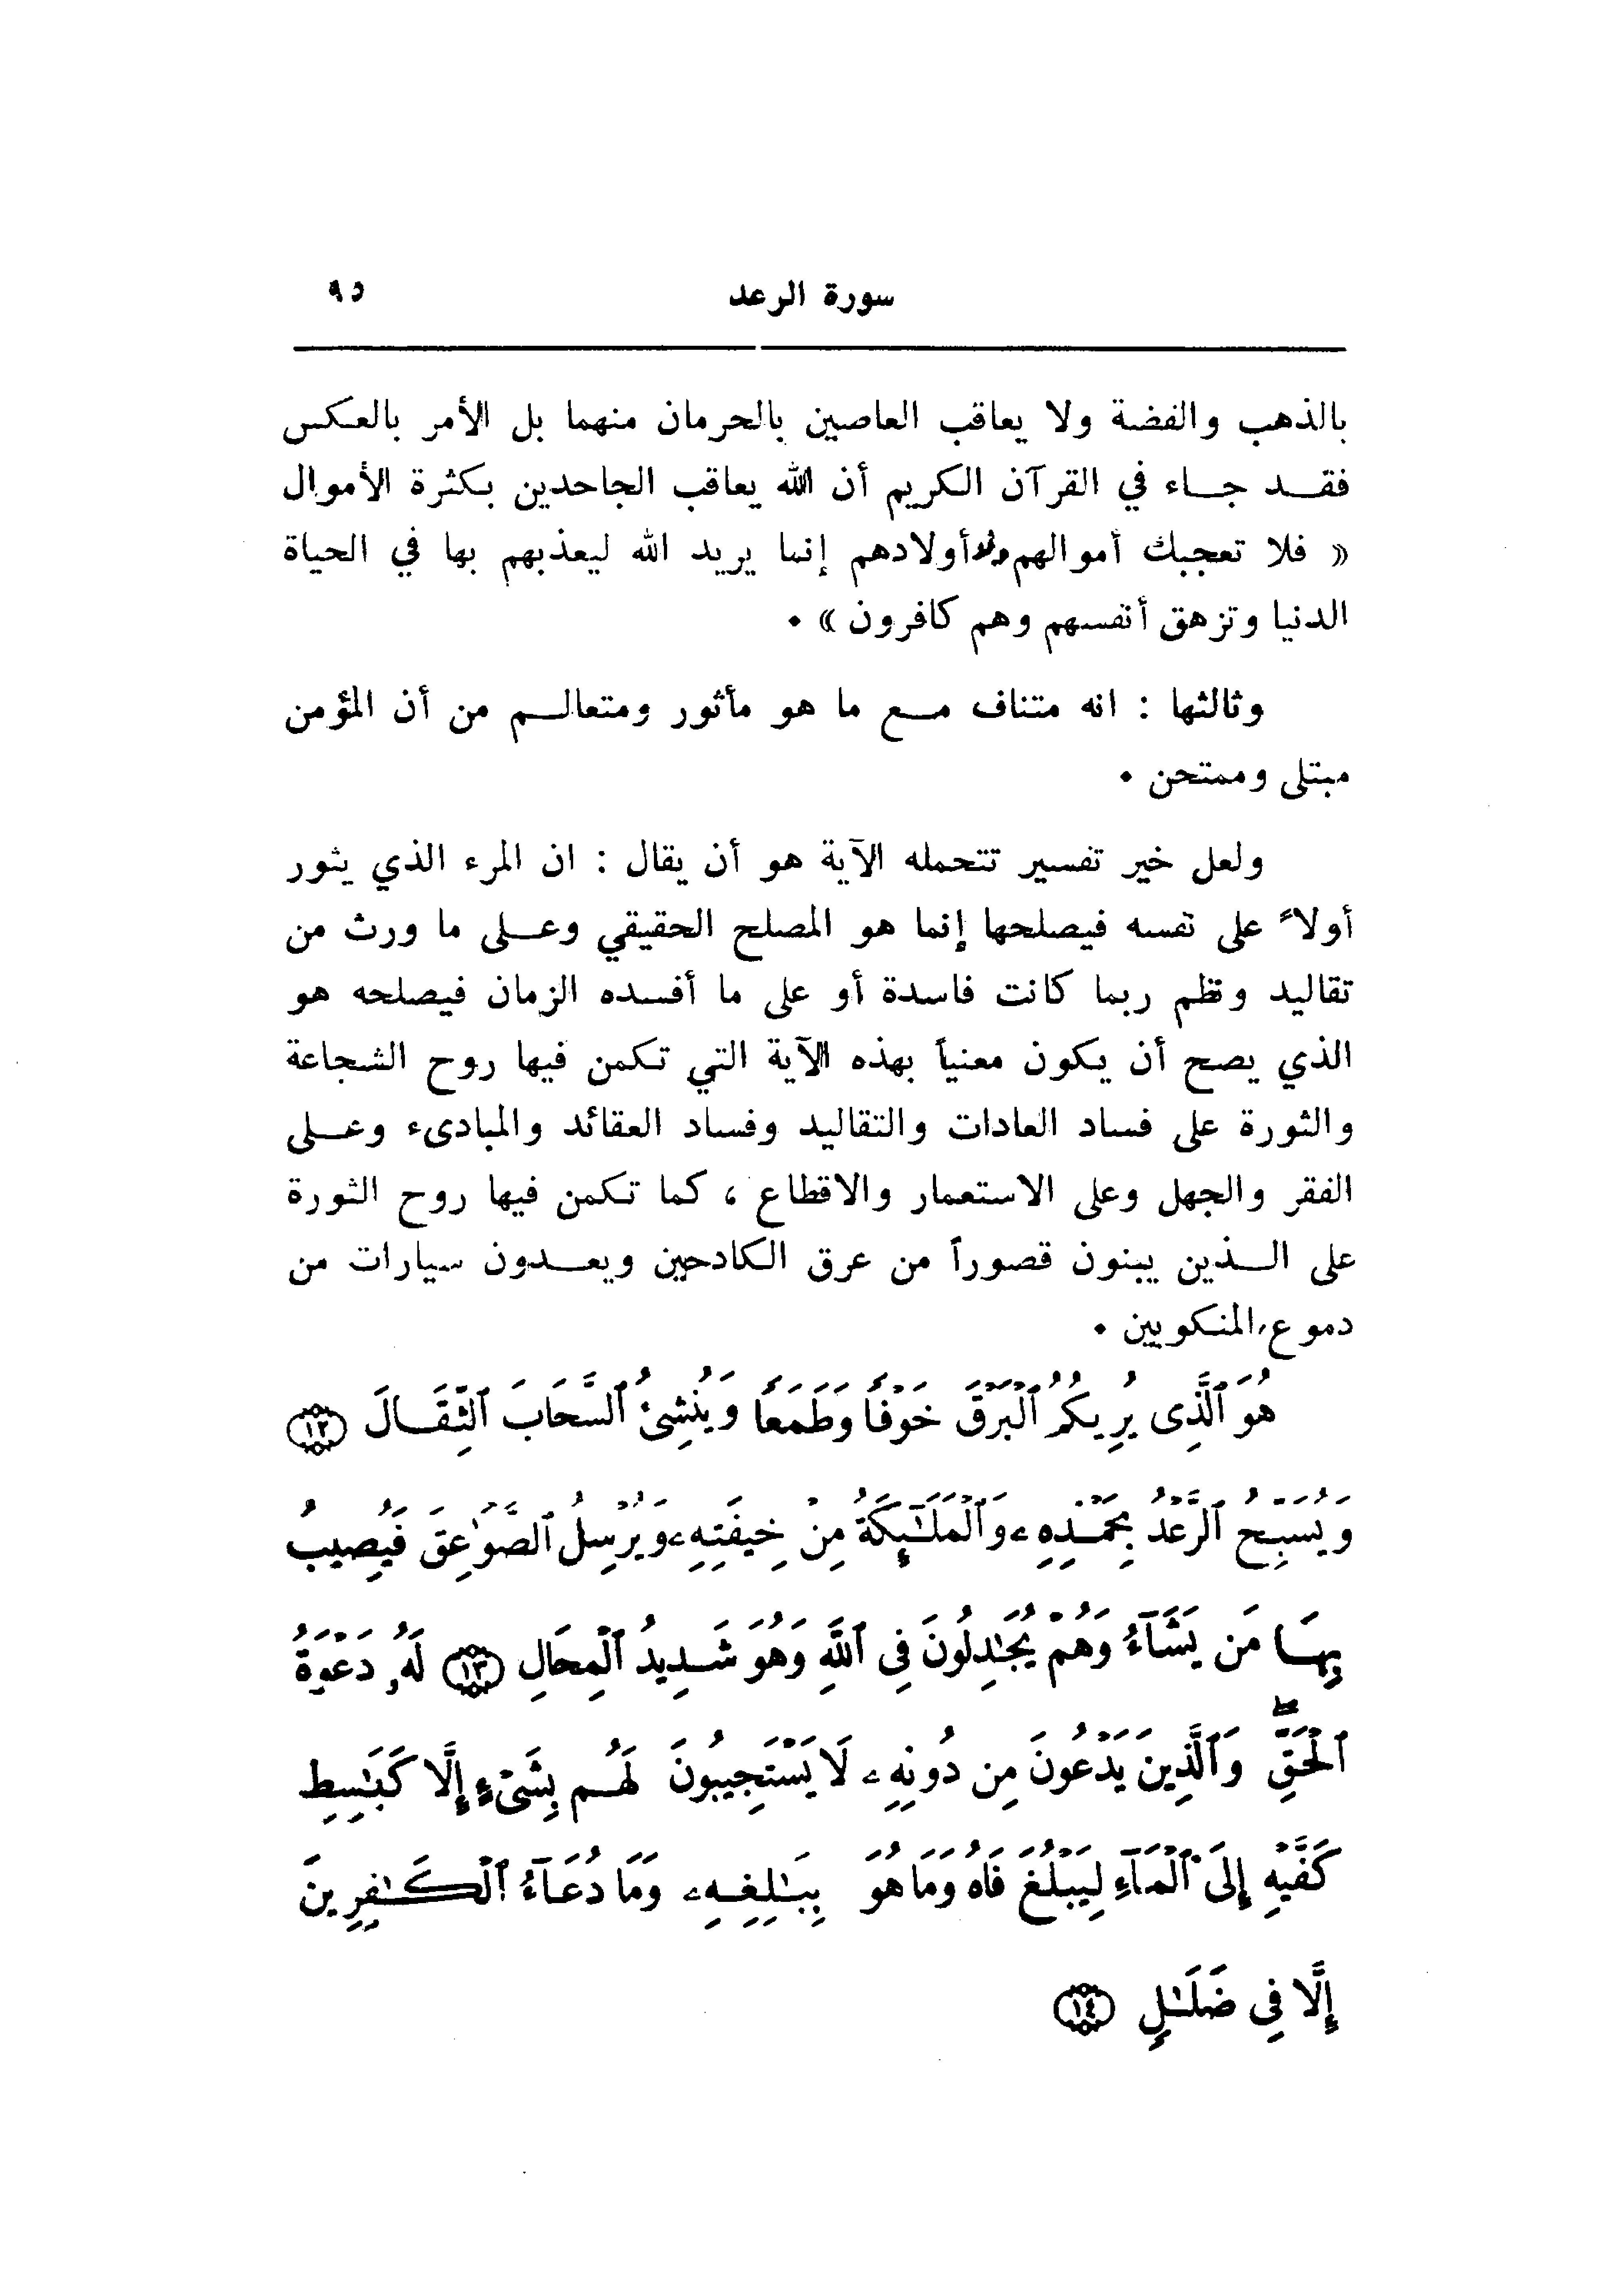 سورة الرعد ٩٥
بالذهب والفضة ولا يعاقب العاصين بالحرمان منهما بل الأمر بالعكس
فقد جاء في القرآن الكريم أن الله يعاقب الجاحدين بكثرة الأموال
« فلا تعجبك أموالهم ولا أولادهم إنما يريد الله ليعذبهم بها في الحياة
الدنيا وتزهق أنفسهم وهم كافرون » •
وثالثها : انه متناف مع ما هو مأثور ومتعالم من أن المؤمن
مبتلى وممتحن •
ولعل خير تفسير تتحمله الآية هو أن يقال : ان المرء الذي يثور
أولا ً على نفسه فيصلحها إنما هو المصلح الحقيقي وعلى ما ورث من
تقاليد ونظم ربما كانت فاسدة أو على ما أفسده الزمان فيصلحه هو
الذي يصح أن يكون معنياً بهذه الآية التي تكمن فيها روح الشجاعة
والثورة على فساد العادات والتقاليد وفساد العقائد والمبادىء وعلى
الفقر والجهل وعلى الاستعمار والاقطاع ، كما تكمن فيها روح الثورة
على الذين يبنون قصوراً من عرق الكادحين ويعدون سيارات من
دموع المنكوبين •
هُوَ ٱلَّذِى يُرِيكُمُ ٱلْبَرْقَ خَوْفًا وَطَمَعًا وَيُنْشِئُ ٱلسَّحَابَ ٱلثِّقَالَ ١٢
وَيُسَبِّحُ ٱلرَّعْدُ بِحَمْدِهِۦ وَٱلْمَلَـٰٓئِكَةُ مِنْ خِيفَتِهِۦ وَيُرْسِلُ ٱلصَّوَٰعِقَ فَيُصِيبُ
بِهَا مَن يَشَآءُ وَهُمْ يُجَـٰدِلُونَ فِى ٱللَّهِ وَهُوَ شَدِيدُ ٱلْمِحَالِ ١٣ لَهُۥ دَعْوَةُ
ٱلْحَقِّ ۖ وَٱلَّذِينَ يَدْعُونَ مِن دُونِهِۦ لَا يَسْتَجِيبُونَ لَهُم بِشَىْءٍ إِلَّا كَبَـٰسِطِ
كَفَّيْهِ إِلَى ٱلْمَآءِ لِيَبْلُغَ فَاهُ وَمَا هُوَ بِبَـٰلِغِهِۦ وَمَا دُعَآءُ ٱلْكَـٰفِرِينَ
إِلَّا فِى ضَلَـٰلٍ ١٤